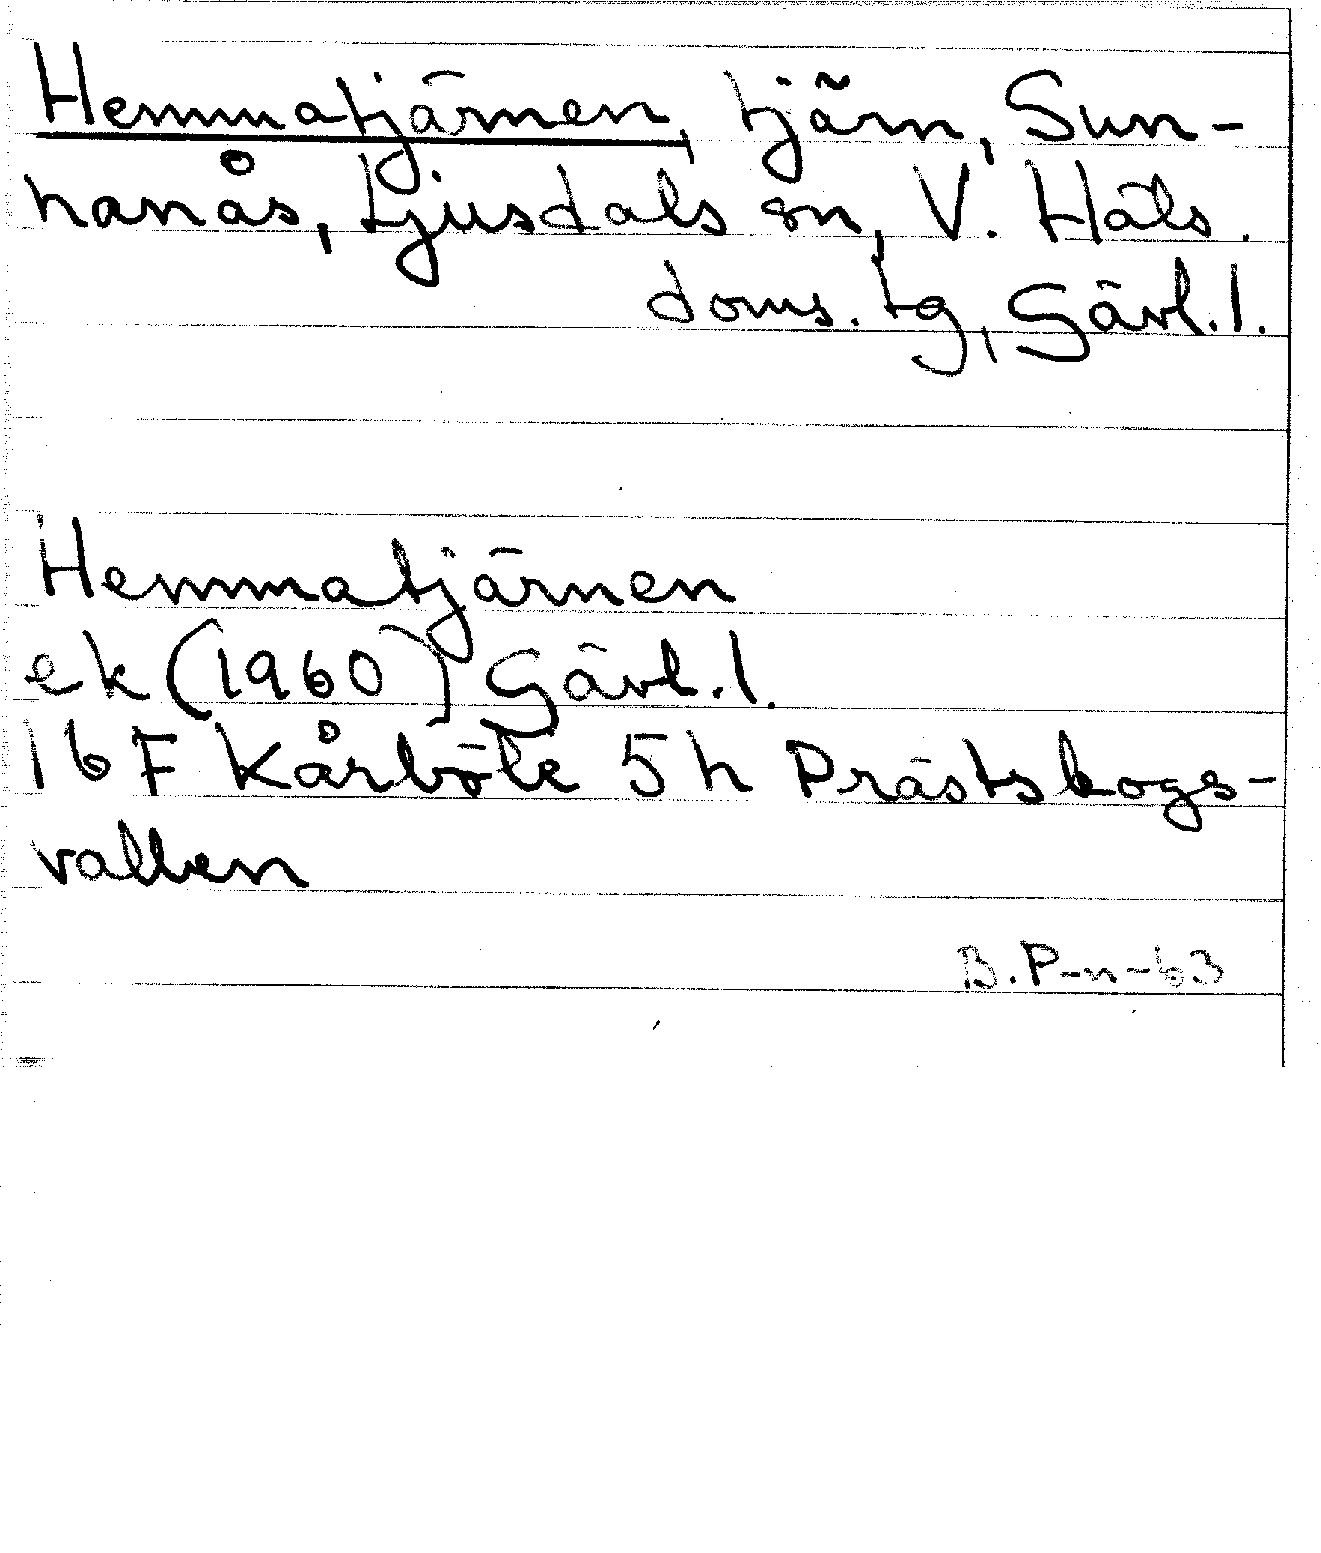 Hemmatjärnen, tjärn, Sun-
nanås, Ljusdals sn, V. Häls.
doms. tg, Gävl. l.
Hemmatjärnen
ek (1960) Gävl. l.
16 F Kårböle 5 h Prästskogs-
vallen
B. P-n-63